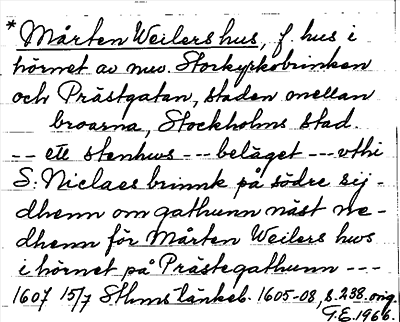 * Mårten Weilers hus, f. hus i
hörnet av nuv. Storkyrkobrinken
och Prästgatan, staden mellan
broarna, Stockholms stad
-- ett stenhws --- beläget --- vthi
S: Niclaes brinnk på södre sij-
dhenn om gathunn näst ne-
dhenn för Mårten Weilers hws
i hörnet på Prästegathunn ---
1607 15/7 Sthms tänkeb. 1605-08, s. 238. orig.
G.E. 1966.